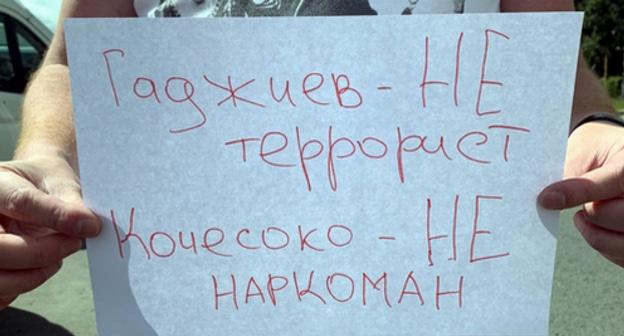 Гаджиев - НЕ
террорист
Кочесоко - НЕ
НАРКОМАН